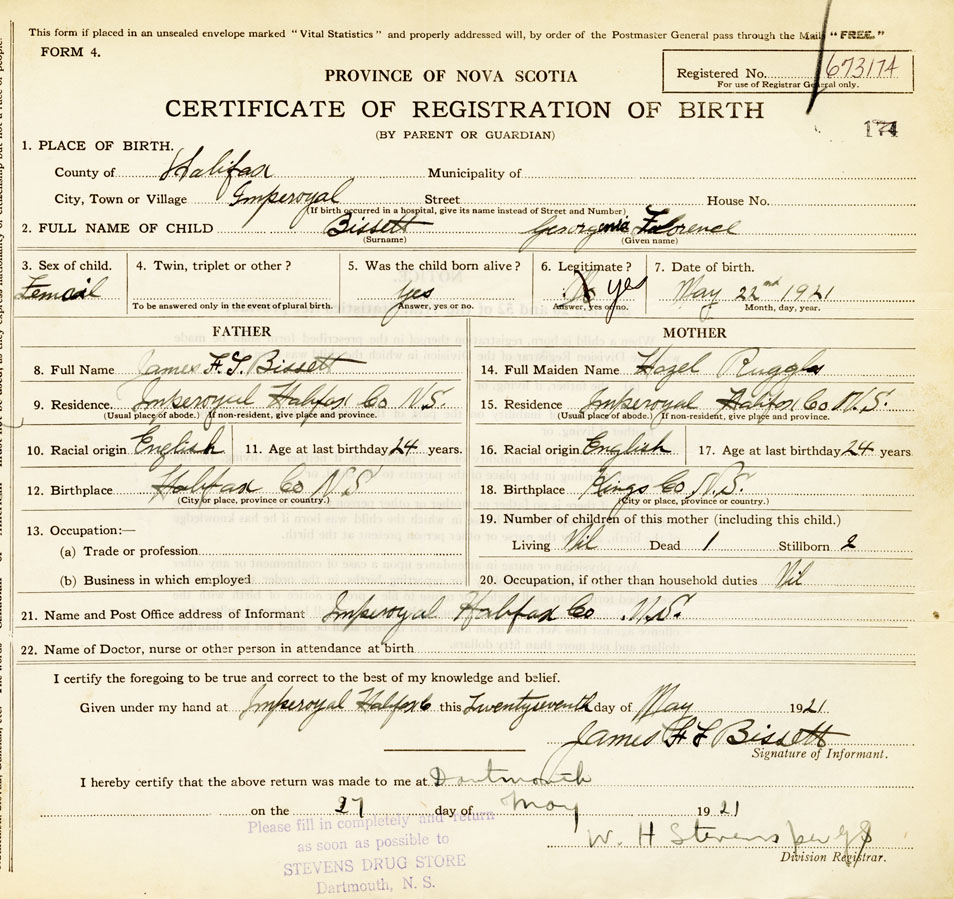 This form if placed in an unsealed envelope marked "Vital Statistics" and properly addressed will, by order of the Postmaster General pass through the Mail "FREE."
FORM 4.
PROVINCE OF NOVA SCOTIA
Registered No. 673174
For use of Registrar General only.
CERTIFICATE OF REGISTRATION OF BIRTH
174
(BY PARENT OR GUARDIAN)
1. PLACE OF BIRTH.
County of Halifax Municipality of
City, Town or Village Imperoyal Street House No.
(If birth occurred in a hospital, give its name instead of Street and Number)
2. FULL NAME OF CHILD Bissett Georgenia Florence
(Surname) (Given name)
3. Sex of child. 4. Twin, triplet or other? 5. Was the child born alive? 6. Legitimate? 7. Date of birth.
Femail yes yes May 22nd 1921
To be answered only in the event of plural birth. Answer, yes or no. Answer, yes or no. Month, day, year.
FATHER MOTHER
8. Full Name James F. T. Bissett 14. Full Maiden Name Hazel Ruggles
9. Residence. Imperoyal Halifax Co N.S. 15. Residence Imperoyal Halifax Co N.S.
(Usual place of abode.) If non-resident, give place and province. (Usual place of abode.) If non-resident, give place and province.
10. Racial origin English 11. Age at last birthday 24 years. 16. Racial origin English 17. Age at last birthday 24 years
12. Birthplace Halifax Co N S 18. Birthplace Kings Co N.S.
(City or place, province or country.) (City or place, province or country.)
13. Occupation:— 19. Number of children of this mother (including this child.)
(a) Trade or profession Living Nil Dead 1 Stillborn 2
(b) Business in which employed 20. Occupation, if other than household duties Nil
21. Name and Post Office address of Informant Imperoyal Halifax Co N.S.
22. Name of Doctor, nurse or other person in attendance at birth
I certify the foregoing to be true and correct to the best of my knowledge and belief.
Given under my hand at Imperoyal Halifax Co this Twentyseventh day of May 1921
James F T Bissett
Signature of Informant.
I hereby certify that the above return was made to me at Dartmouth
on the 27 day of May 1921
Please fill in completely and return
as soon as possible to
STEVENS DRUG STORE
Dartmouth, N. S.
W. H Stevens per
Division Registrar.